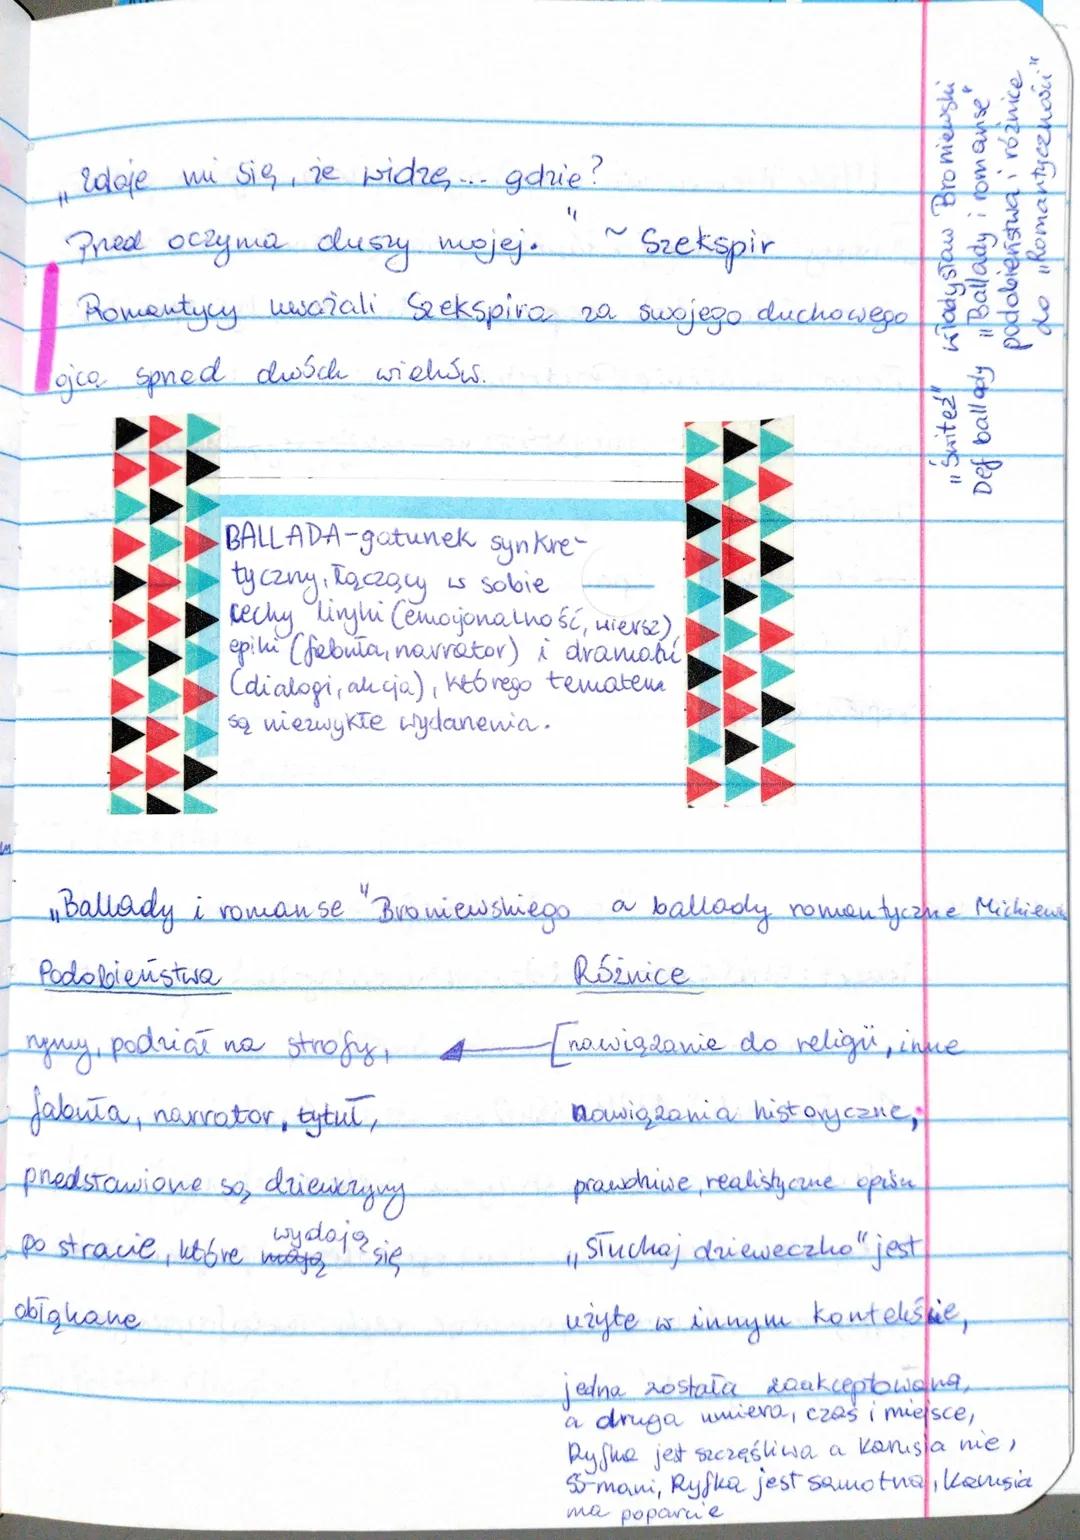 „Zdaje mi się, że widzę... gdzie?
Przed oczyma duszy mojej." ~ Szekspir
Romantycy uważali Szekspira za swojego duchowego
ojca sprzed dwóch wieków.
BALLADA-gatunek synkre-
tyczny, łączący w sobie
cechy liryki (emocjonalność, wiersz),
epiki (fabuła, narrator) i dramatu
(dialogi, akcja), którego tematem
są niezwykłe wydarzenia.
„Ballady i romanse" Broniewskiego a ballady romantyczne Mickiew
Podobieństwa
rymy, podział na strofy,
fabuła, narrator, tytuł,
przedstawione są dziewczyny
po stracie, które wydają się
obłąkane
Różnice
[nawiązanie do religii, inne
nawiązania historyczne,
prawdziwe, realistyczne opisu
„Słuchaj dzieweczko" jest
użyte w innym kontekście,
jedna została zaakceptowana,
a druga umiera, czas i miejsce,
Ryfka jest szczęśliwa a Karusia nie,
Ryfka jest samotna, Karusia
ma poparcie
„Świteź" Władysław Broniewski
Def ballady „Ballady i romanse"
podobieństwa i różnice
do „Romantyczności"